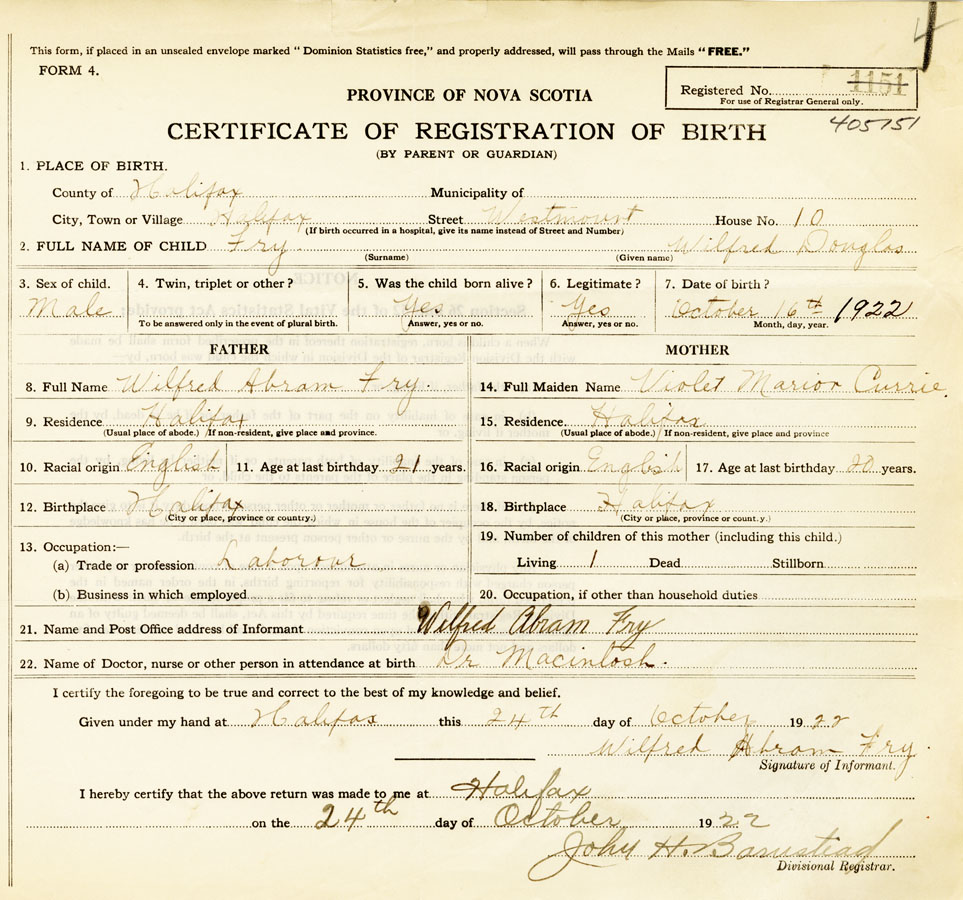 4
This form, if placed in an unsealed envelope marked "Dominion Statistics free," and properly addressed, will pass through the Mails "FREE."
FORM 4.
Registered No. 1151
For use of Registrar General only.
PROVINCE OF NOVA SCOTIA
405151
CERTIFICATE OF REGISTRATION OF BIRTH
(BY PARENT OR GUARDIAN)
1. PLACE OF BIRTH.
County of Halifax Municipality of
City, Town or Village Halifax Street Westmount House No. 10
(If birth occurred in a hospital, give its name instead of Street and Number)
2. FULL NAME OF CHILD Fry Wilfred Douglas
(Surname) (Given name)
3. Sex of child. 4. Twin, triplet or other? 5. Was the child born alive? 6. Legitimate? 7. Date of birth?
Male Yes Yes October 16th 1922
To be answered only in the event of plural birth. Answer, yes or no. Answer, yes or no. Month, day, year.
FATHER MOTHER
8. Full Name Wilfred Abram Fry. 14. Full Maiden Name Violet Marion Currie
9. Residence Halifax 15. Residence. Halifax
(Usual place of abode.) / If non-resident, give place and province. (Usual place of abode.) / If non-resident, give place and province
10. Racial origin English 11. Age at last birthday 21 years. 16. Racial origin English 17. Age at last birthday 20 years.
12. Birthplace Halifax 18. Birthplace Halifax
(City or place, province or country.) (City or place, province or count.y.)
13. Occupation:— 19. Number of children of this mother (including this child.)
(a) Trade or profession Laborour Living 1 Dead Stillborn
(b) Business in which employed 20. Occupation, if other than household duties
21. Name and Post Office address of Informant Wilfred Abram Fry
22. Name of Doctor, nurse or other person in attendance at birth Dr Macintosh.
I certify the foregoing to be true and correct to the best of my knowledge and belief.
Given under my hand at Halifax this 24th day of October 1922
Wilfred Abram Fry.
Signature of Informant.
I hereby certify that the above return was made to me at Halifax
on the 24th day of October 1922
John H. Barnstead
Divisional Registrar.